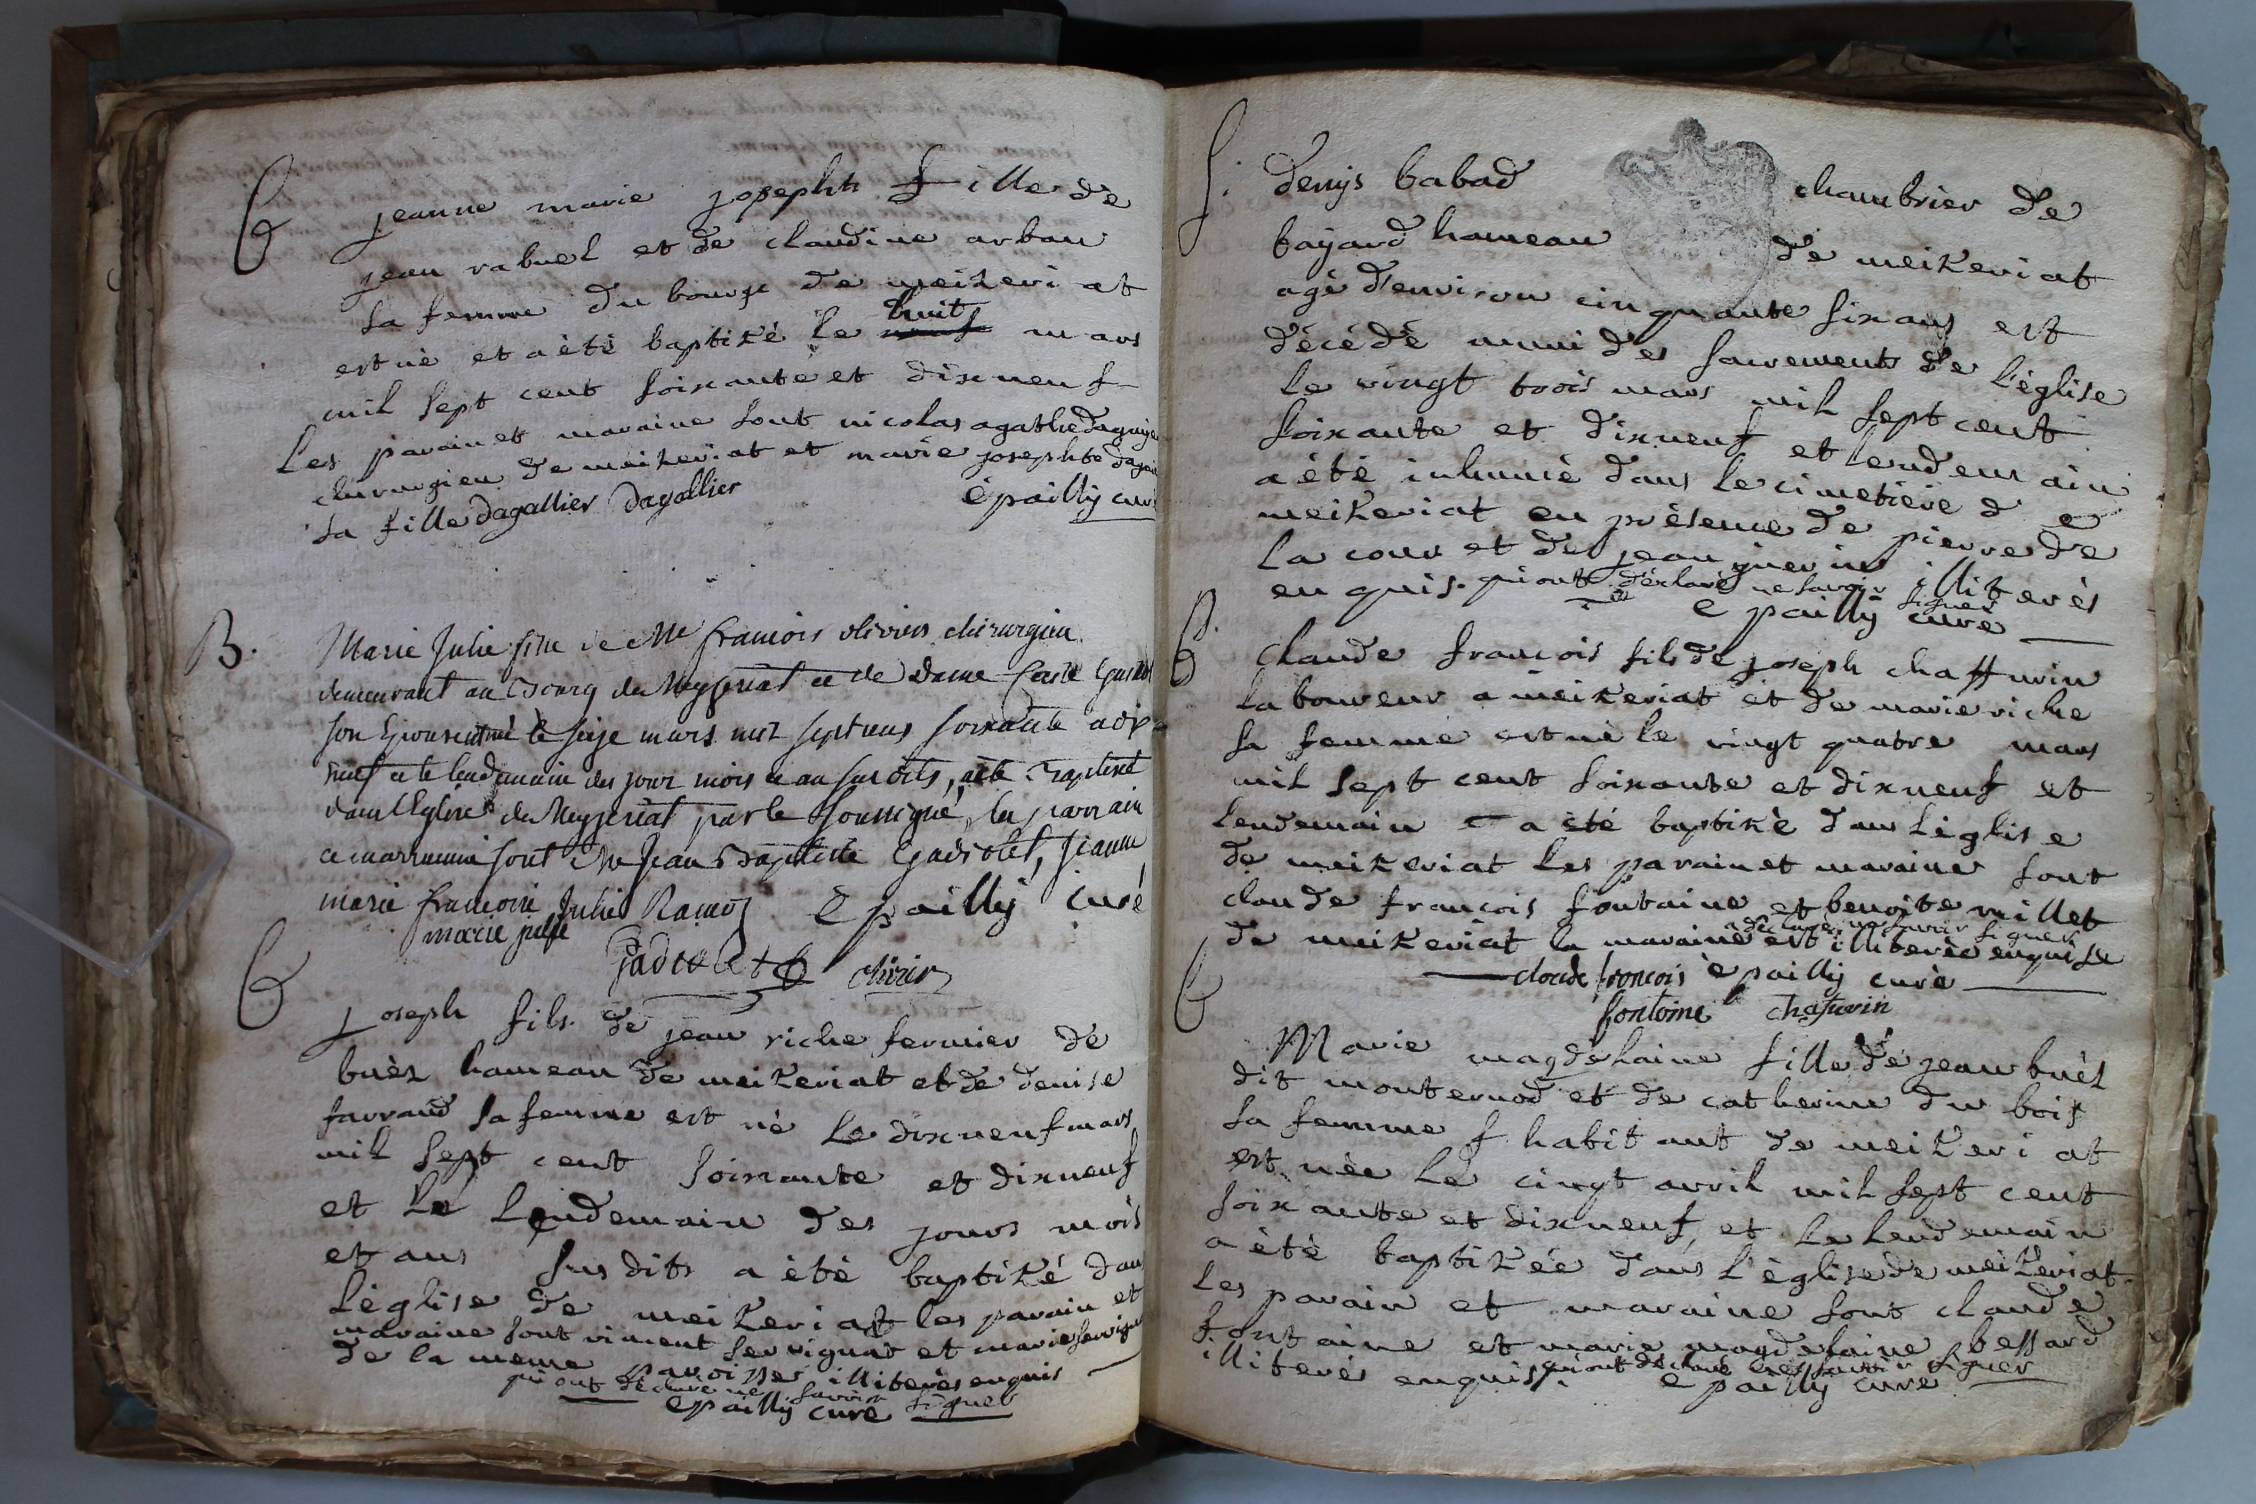 B jeanne marie josephte fille de
jean rabuel et de claudine arban
sa femme du bourg de meizeriat
est né et a été baptizé le huit mars
mil sept cent soixante et dixneuf
Les parain et maraine sont nicolas agathe
chirurgien de meizeriat et marie josephte
sa fille Dagallier Dagallier épailly curé
B. Marie Julie fille de Me francois olivier chirurgien
demeurant au Bourg de Meyzeriat et de Dame
son Epouse est né le seize mars mil sept cens soixante et dix
neuf et le lendemain des jour mois et an susdits, a été Baptisé
dans l'Eglise de Meyzeriat par le soussigné, les parrain
et marraine sont Me Jean Baptiste Gadiolet, Jeanne
marie francoise Julie épailly Curé
marie julie Gadiolet olivier
B joseph fils de jean riche fermier de
buèz hameau de meizeriat et de denise
farraud sa femme est né le dixneuf mars
mil sept cent soixante et dixneuf
et le lendemain des jours mois
et ans susdits a été baptizé dans
l'église de meizeriat les parain et
maraine sont vincent servignat et marie
de la meme paroisse illiterés enquis
qui ont déclaré ne savoir signer
epailly curé
S. denys babad chambrier de
bayard hameau de meizeriat
agé d'environ cinquante six ans est
décédé muni des sacrements de l'église
le vingt trois mars mil sept cent
soixante et dixneuf et lendemain
a été inhumé dans le cimetière de
meizeriat en présence de pierre de
la cour et de jean guerin illiterés
enquis. qui ont déclaré ne savoir signer
epailly curé
B. claude francois fils de joseph chaffurin
laboureur a meizeriat et de marie riche
sa femme est né le vingt quatre mars
mil sept cent soixante et dixneuf et
lendemain a été baptizé dans l'église
de meizeriat les parain et maraine sont
claude francois fontaine et benoite millet
a déclaré ne savoir signer
de meizeriat la maraine est illiterée enquise
claude francois epailly curé
fontaine chafurin
B Marie magdelaine fille de jean buèz
dit monternod et de catherine du bois
sa femme habitant de meizeriat
est née le cingt avril mil sept cent
soixante et dixneuf, et le lendemain
a été baptizée dans l'église de meizeriat
les parain et maraine sont claude
fontaine et marie magdelaine bessard
illiterés enquis qui ont déclaré ne savoir signer
epailly curé